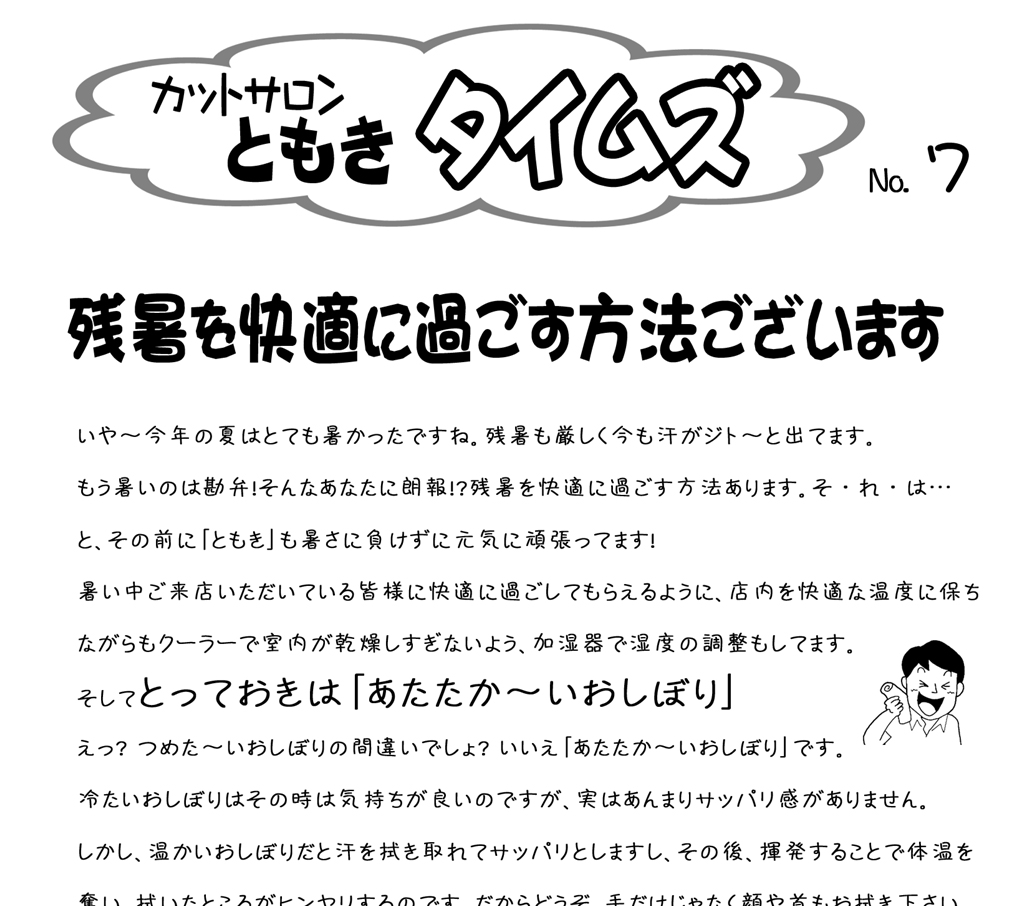 カットサロン
ともき タイムズ
No. 7
残暑を快適に過ごす方法ございます
いや～今年の夏はとても暑かったですね。残暑も厳しく今も汗がジト～と出てます。
もう暑いのは勘弁!そんなあなたに朗報!?残暑を快適に過ごす方法あります。そ・れ・は…
と、その前に「ともき」も暑さに負けずに元気に頑張ってます!
暑い中ご来店いただいている皆様に快適に過ごしてもらえるように、店内を快適な温度に保ち
ながらもクーラーで室内が乾燥しすぎないよう、加湿器で湿度の調整もしてます。
そしてとっておきは「あたたか～いおしぼり」
えっ? つめた～いおしぼりの間違いでしょ? いいえ「あたたか～いおしぼり」です。
冷たいおしぼりはその時は気持ちが良いのですが、実はあんまりサッパリ感がありません。
しかし、温かいおしぼりだと汗を拭き取れてサッパリとしますし、その後、揮発することで体温を
奪い、拭いたところがヒンヤリするのです。だからどうぞ、手だけじゃなく顔や首もお拭き下さい。